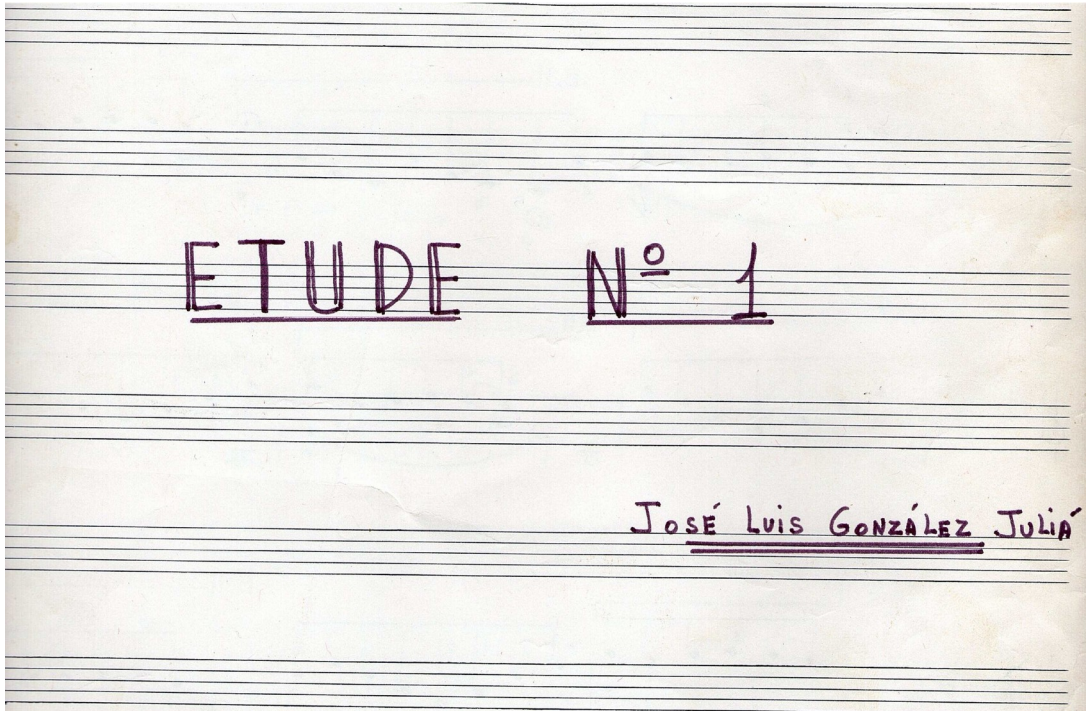 ETUDE Nº 1
JOSÉ LUIS GONZÁLEZ JULIÁ